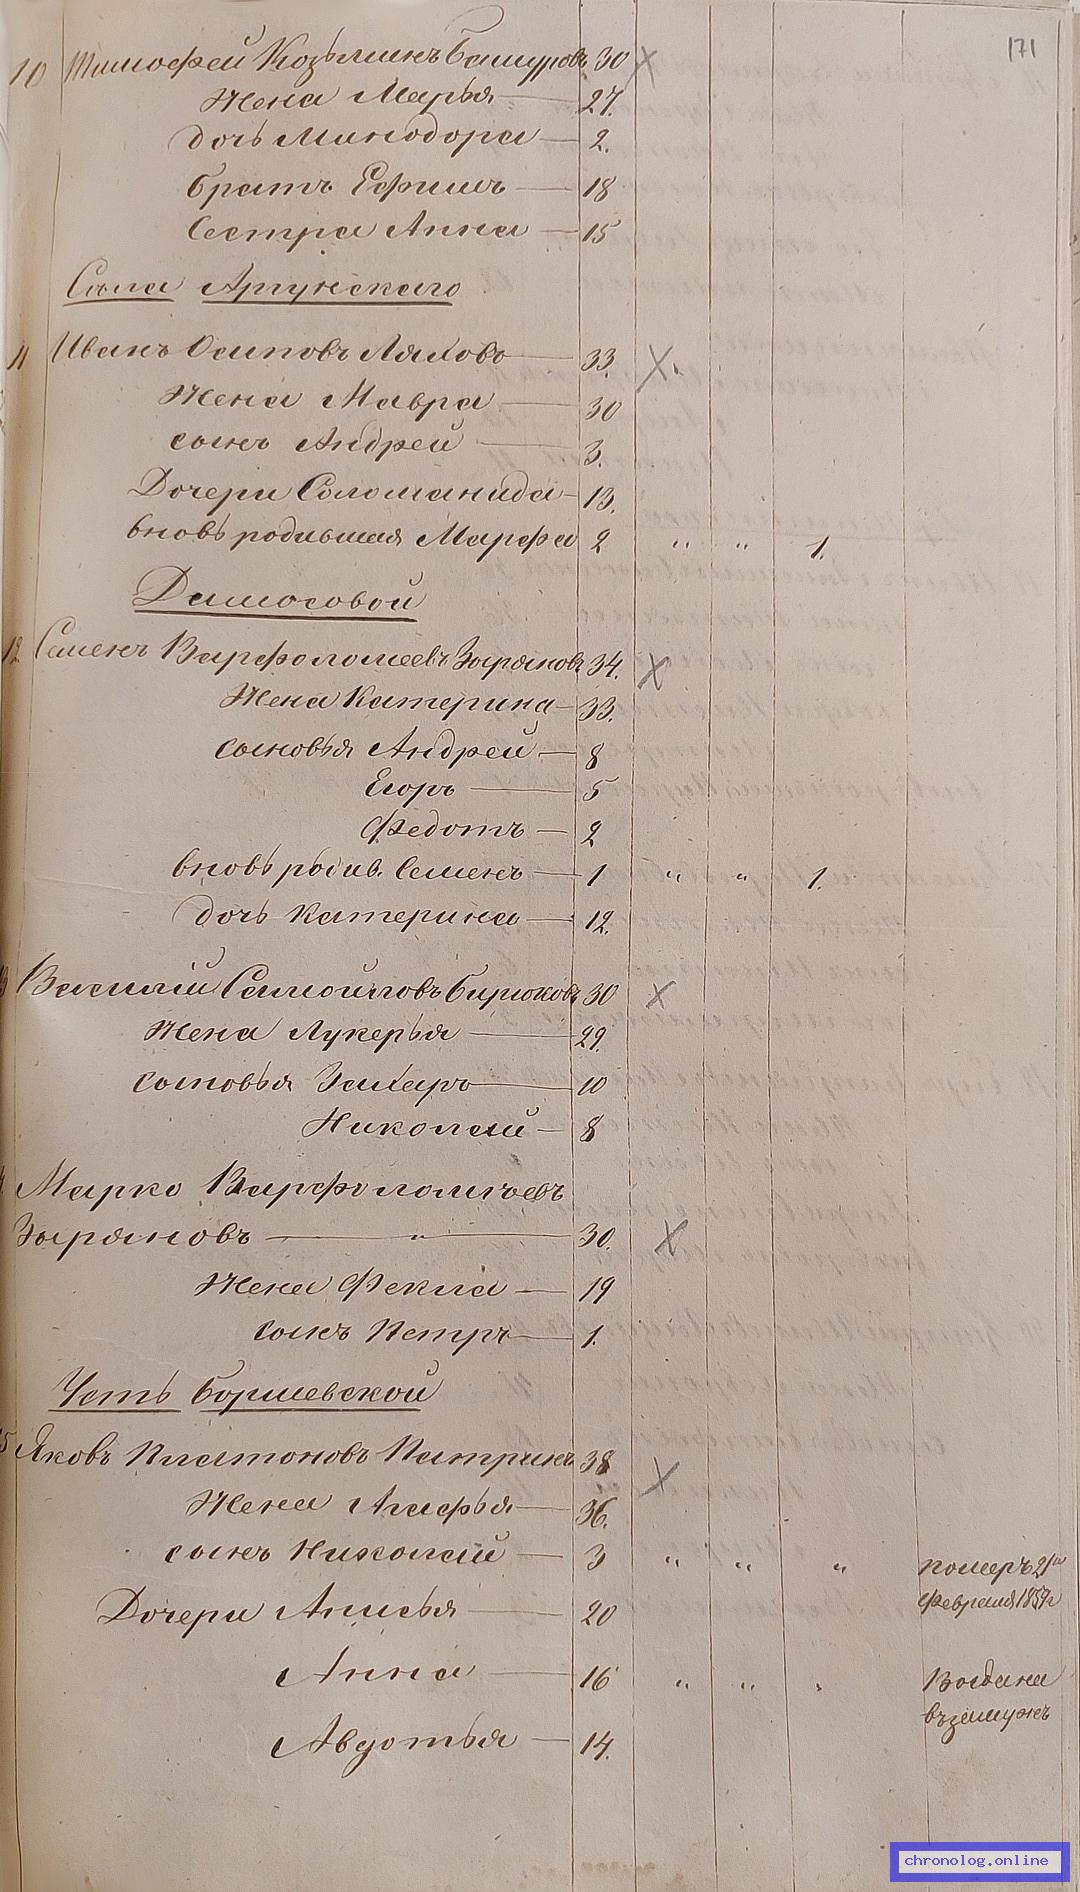 171
10 Тимофей Козьминъ Башуровъ 30
Жена Марья 27.
дочь Минодора 2.
братъ Ефимъ 18
Сестра Анна 15
Села Аргунскаго
11 Иванъ Осиповъ Ляховъ 33.
Жена Мавра 30
сынъ Андрей 3.
Дочери Соломанида 13.
вновь родившая Марфа 2 " " 1.
Дамосовой
12 Семенъ Варфоломеевъ Зыряновъ 34.
Жена Катерина 33.
сыновья Андрей 8
Егоръ 5
Федотъ 2
вновь родив. Семенъ 1 " " 1.
дочь Катерина 12.
Василій Самойловъ Бирюковъ 30
Жена Лукерья 29.
сыновья Захаръ 10
Николай 8
Марко Варфоломѣевъ
Зыряновъ " 30.
Жена Фекла 19
сынъ Петръ 1.
Усть Борщевской
Яковъ Платоновъ Патринъ 38
Жена Агафья 36.
сынъ Николай 3 " " " померъ 21го
Февраля 1857г
Дочери Анисья 20
Анна 16 " " " Выдана
въ замужъ
Авдотья 14.
chronolog.online